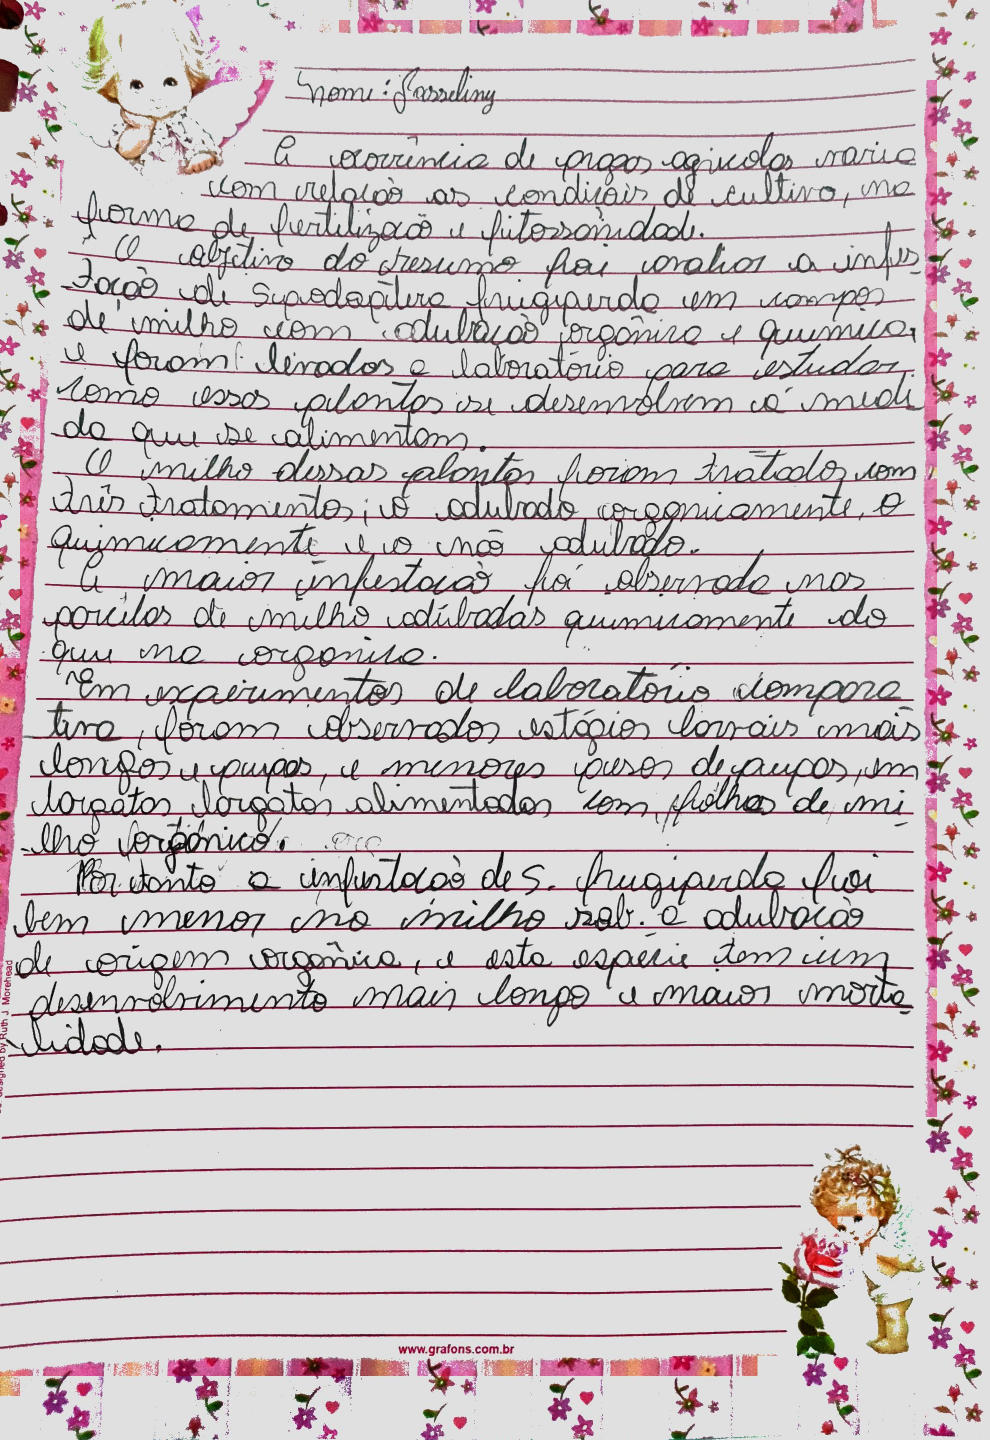 Nome: Josseliny
A ocorrência de pragas agicolas varia
com relação as condiçais de cultivo, na
forma de fertilização e fitossânidade.
O objetivo do resumo foi avaliar a infes-
tação de Spodoptera frugiperda em campos
de milho com adubação orgânica e química,
e foram levados a laboratório para estudar
como essas plantas se desenvolvem á medi
da que se alimentam.
O milho dessas plantas foram tratados com
três tratamentos; o adubado organicamente, o
quimicamente e o não adubado.
A maior infestação foi observada nas
parcelas de milho adubadas quimicamente do
que na organica.
Em experimentos de laboratório compara
tiva, foram observados estágios larvais mais
longos e pupas, e menores pesos de pupas, em
largatas largatas alimentadas com folhas de mi-
lho orgânico.
Portanto a infestação de S. frugiperda foi
bem menor no milho sob. a adubação
de origem orgânica, e esta espécie tem um
desenvolvimento mais longo e maior morta-
lidade.
designed by Ruth J. Morehead
www.grafons.com.br